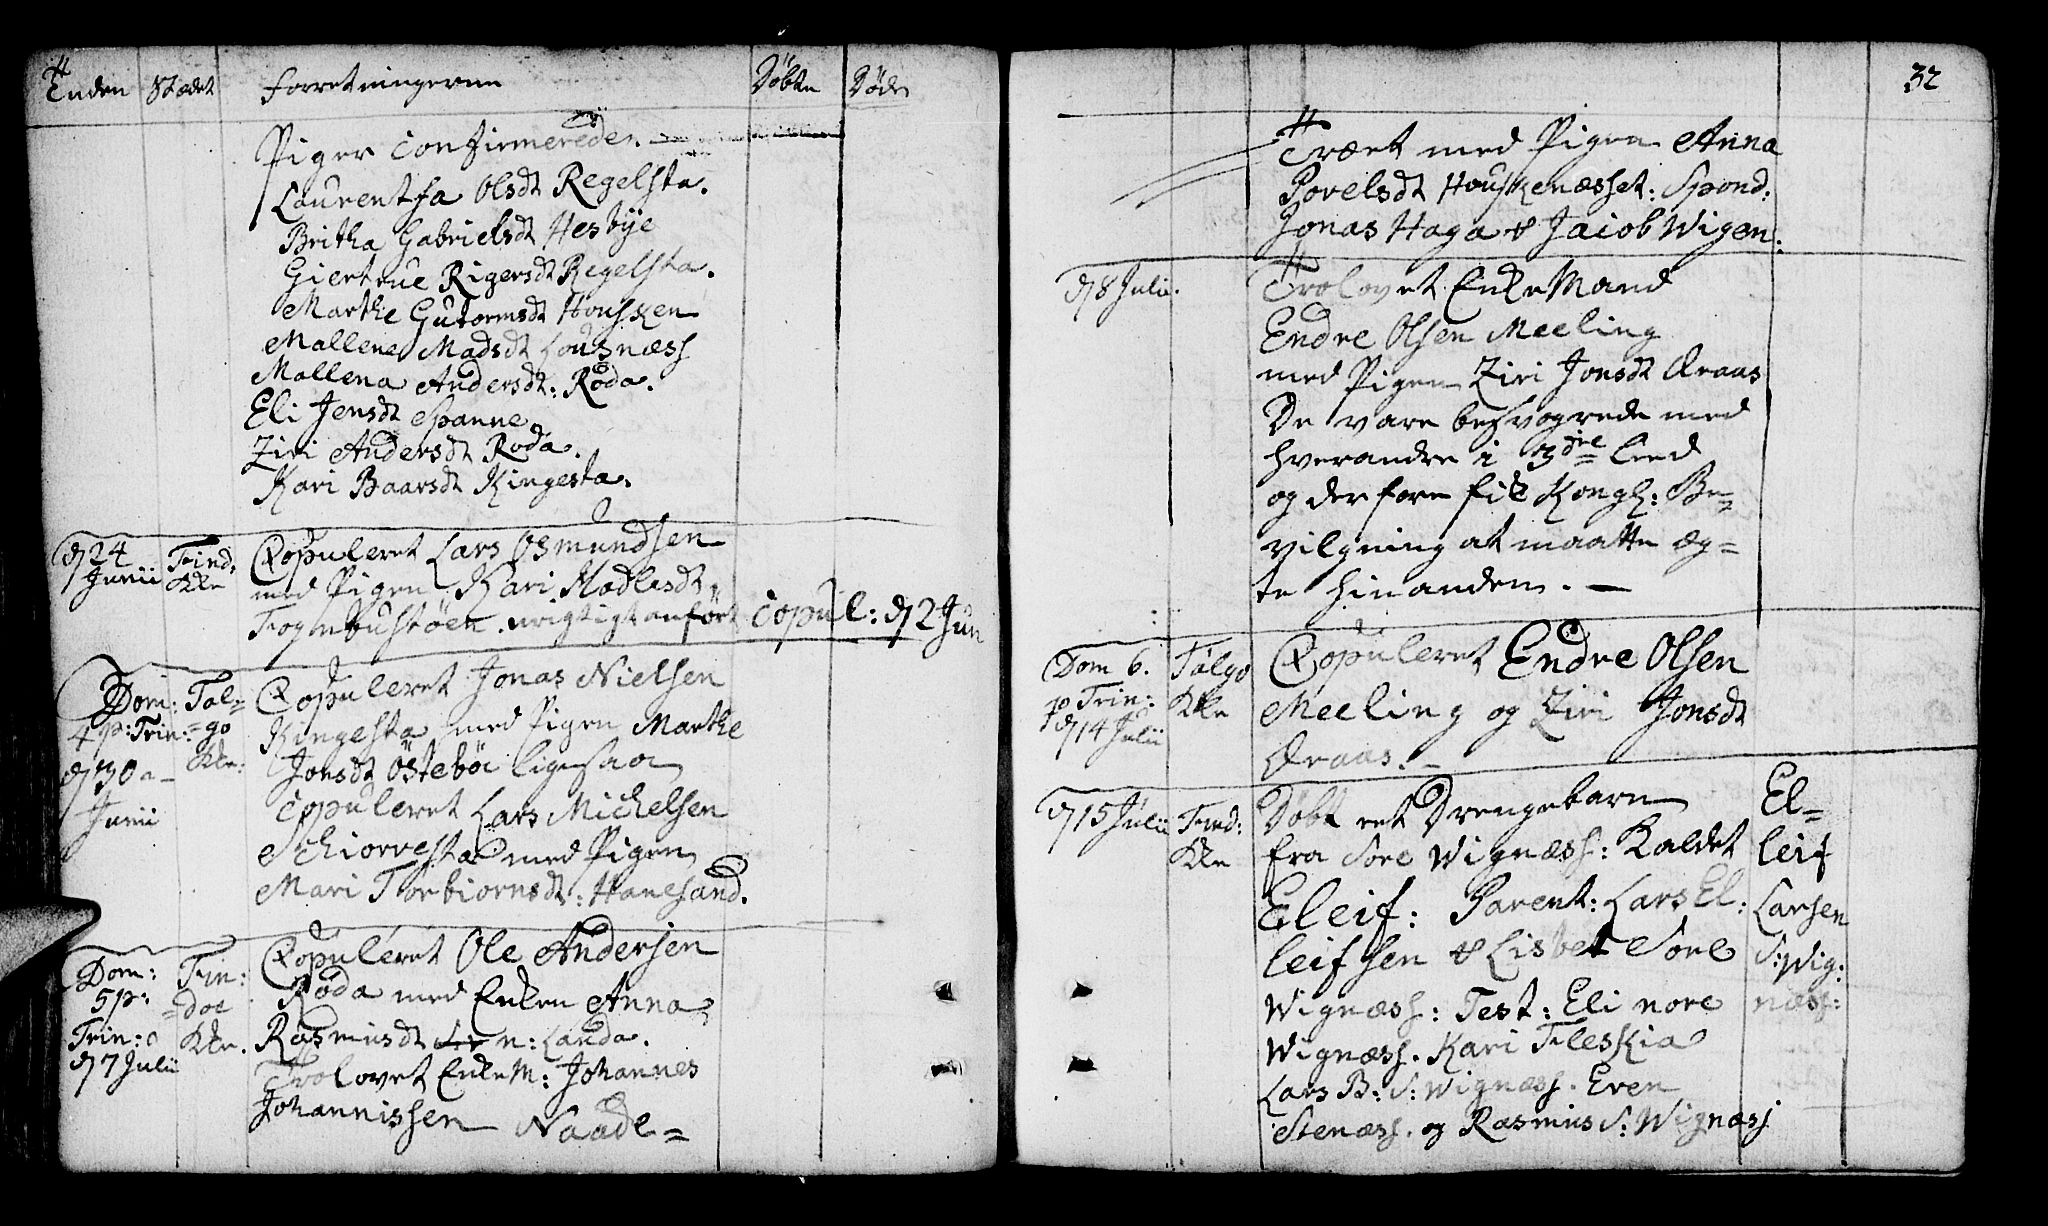 Tiden Stædet Forretningerne Döbte Döde
Piger Confirmerede.
Laurentsa Olsdt Regelsta.
Britha Gabrielsdt Hesbÿe
Giertrue Rigersdt Regelsta.
Marthe Gutormsdt Housken
Mallene Madsdt Lousnæss
Mallena Andersdt: Röda.
Eli Jensdt Spanne
Ziri Andersdt Roda.
Kari Baarsdt Kingesta.
d 24 Junii Find: Kke Copuleret Lars Osmundsen
med Pigen Kari Madlesdt
Fognbustöen. urigtigt anfört Copul: d 2 Jun
Dom: 4 p: Trin: d 30 Junii Talgo Kke: Copuleret Jonas Nielsen
Kingesta med Pigen Marthe
Jonsdt Östeböe ligesaa
Copuleret Lars Michelsen
Schiorvesta med Pigen
Mari Torbiornsdt: Hanesand.
Dom: 5 p: Trin: d 7 Julii Fin: döe Kke. Copuleret Ole Andersen
Röda med Enken Anna
Rasmusdt n: Landa.
Trolovet Enke M: Johannes
Johannissen Naade=
32
Træet med Pigen Anna
Povelsdt Houskenæsset: Spond:
Jonas Haga & Jacob Wigen:
d 8 Julii. Trolovet Enke Mand
Endre Olsen Meeling
med Pigen Ziri Jonsdt Araas
De vare besvogrede med
hverandre i 3die Leed
og derfore fik Kongl: Be=
vilgning at maatte æg=
te hinanden. —
Dom 6. p Trin: d 14 Julii Talgo Kke Copuleret Endre Olsen
Meeling og Ziri Jonsdt
Araas. —
d 15 Julii Find: Kke Döbt eet Drengebarn El=
fra Sore Wignæss: Kaldet leif
Eleif: Parent: Lars El: Larsen
leifsen & Lisbet Sore S: Wig:
Wignæss: Test: Eli nore næss:
Wignæss. Kari Fleskia
Lars B: S: Wignæss. Even
Stenæss. og Rasmus S: Wignæss